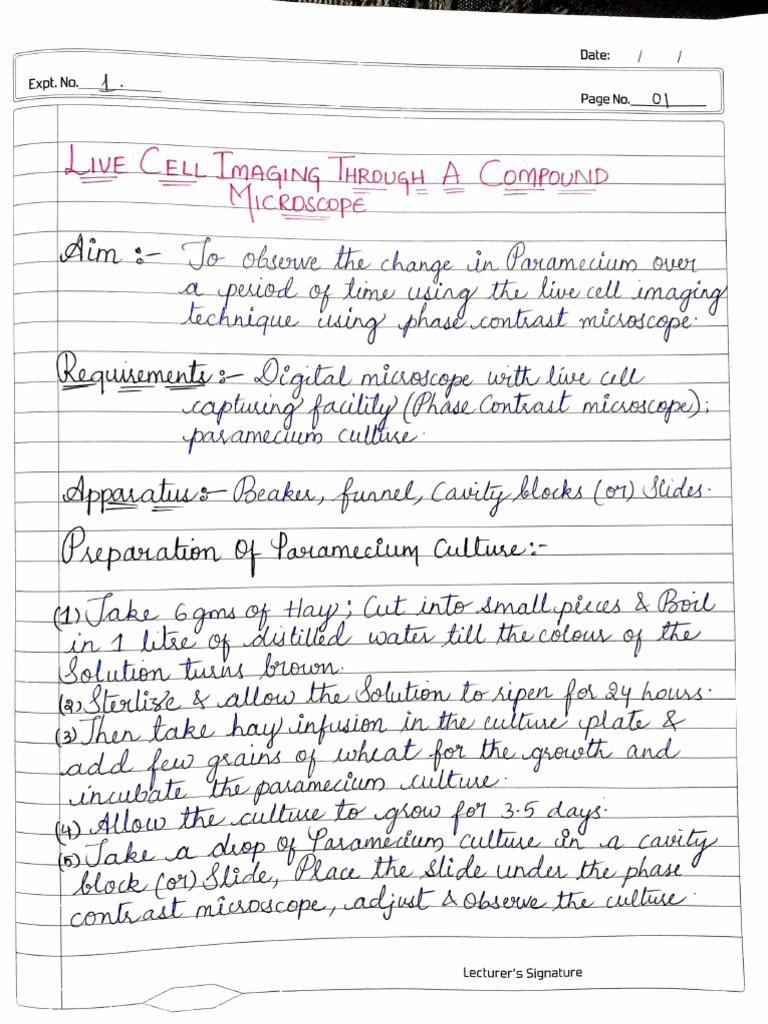 Date: / /
Expt. No. 1.
Page No. 01
LIVE CELL IMAGING THROUGH A COMPOUND
MICROSCOPE
Aim :- To observe the change in Paramecium over
a period of time using the live cell imaging
technique using phase contrast microscope.
Requirements :- Digital microscope with live cell
capturing facility (Phase Contrast microscope);
paramecium culture.
Apparatus :- Beaker, funnel, Cavity blocks (or) Slides.
Preparation Of Paramecium Culture:-
(1) Take 6 gms of Hay; Cut into small pieces & Boil
in 1 litre of distilled water till the colour of the
Solution turns brown.
(2) Sterlize & allow the Solution to ripen for 24 hours.
(3) Then take hay infusion in the culture plate &
add few grains of wheat for the growth and
incubate the paramecium culture.
(4) Allow the culture to grow for 3-5 days.
(5) Take a drop of Paramecium culture in a cavity
block (or) Slide, Place the slide under the phase
contrast microscope, adjust & Observe the culture.
Lecturer's Signature